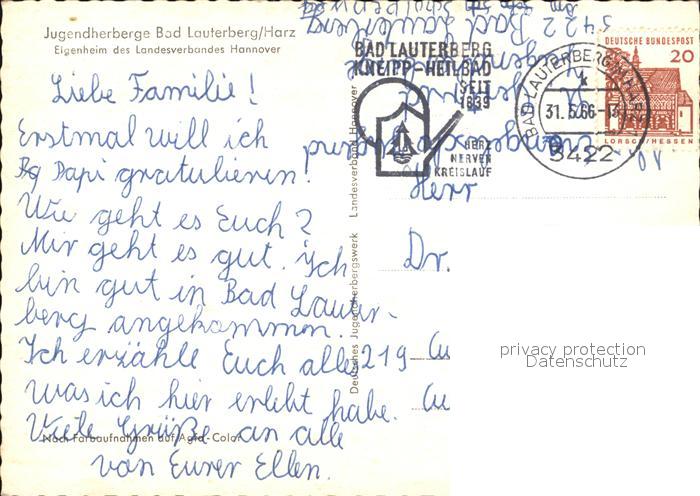 Jugendherberge Bad Lauterberg/Harz
Eigenheim des Landesverbandes Hannover
Liebe Familie!
Erstmal will ich
Papi gratulieren!
Wie geht es Euch?
Mir geht es gut. Ich
bin gut in Bad Lauter-
berg angekommen.
Ich erzähle Euch alles
was ich hier erlebt habe.
Viele Grüße an alle
von Eurer Ellen.
Nach Farbaufnahmen auf Agfa-Color
Deutsches Jugendherbergswerk Landesverband Hannover
5422 Bad Lauterberg
BAD LAUTERBERG
KNEIPP-HEILBAD
SEIT
1839
HERZ
NERVEN
KREISLAUF
BAD LAUTERBERG
31.5.66
3422
DEUTSCHE BUNDESPOST
20
LORSCH/HESSEN
Herr
Dr.
219 Cu
Cu
privacy protection
Datenschutz